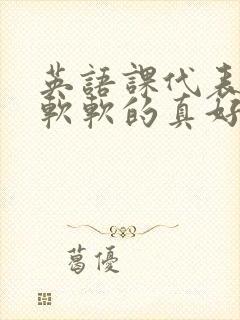 英語課代表
軟軟的真好
葛優